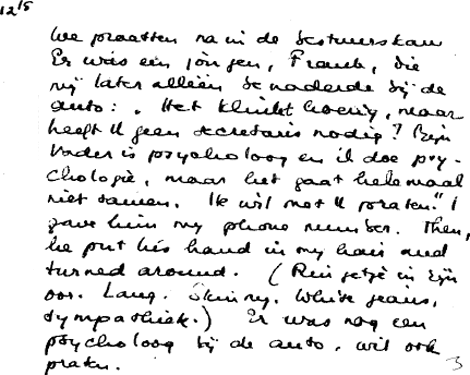 12 15
We praatten na in de bestuurskam
Er was een jongen, Frank, die
mij later alleen benaderde bij de
auto: "Het klinkt hoerig, maar
heeft U geen secretaris nodig? Mijn
Vader is psycholoog en ik doe psy-
chologie, maar het gaat helemaal
niet samen. Ik wil met U praten." I
gave him my phone number. Then,
he put his hand in my hair and
turned around. (Ringetje in zijn
oor. Lang. Skinny. White jeans,
sympathiek.) Er was nog een
psycholoog bij de auto, wil ook
praten.
3